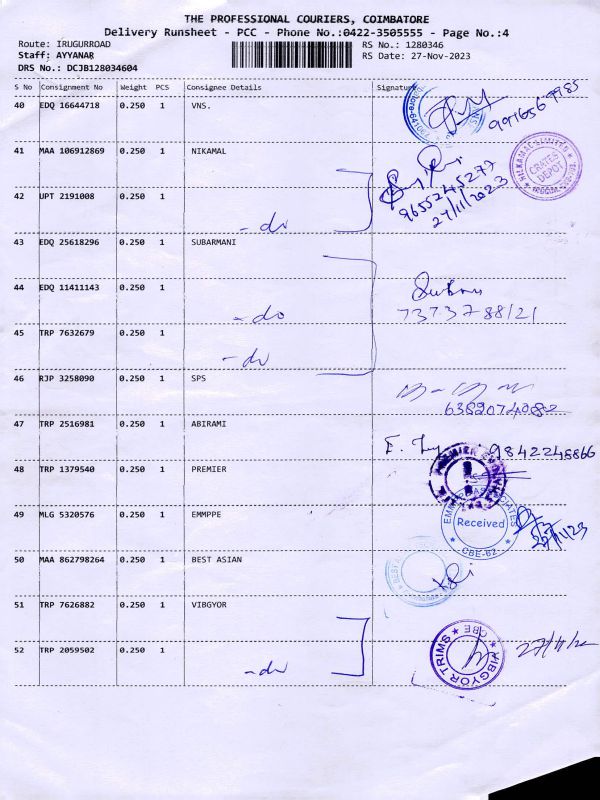 THE PROFESSIONAL COURIERS, COIMBATORE
Delivery Runsheet - PCC - Phone No.:0422-3505555 - Page No.:4
Route: IRUGURROAD RS No.: 1280346
Staff: AYYANAR RS Date: 27-Nov-2023
DRS No.: DCJB128034604
S No Consignment No Weight PCS Consignee Details Signature
40 EDQ 16644718 0.250 1 VNS.
41 MAA 106912869 0.250 1 NIKAMAL
NILKAMAL LIMITED
CRATES DEPOT
9655245277
27/11/2023
42 UPT 2191008 0.250 1
- do
43 EDQ 25618296 0.250 1 SUBARMANI
44 EDQ 11411143 0.250 1
- do
73737 88121
45 TRP 7632679 0.250 1
- do
46 RJP 3258090 0.250 1 SPS
47 TRP 2516981 0.250 1 ABIRAMI
9842245866
48 TRP 1379540 0.250 1 PREMIER
49 MLG 5320576 0.250 1 EMMPPE
Received
CBE-62
27/11/23
50 MAA 862798264 0.250 1 BEST ASIAN
51 TRP 7626882 0.250 1 VIBGYOR
VIBGYOR TRIMS
CBE
52 TRP 2059502 0.250 1
- do